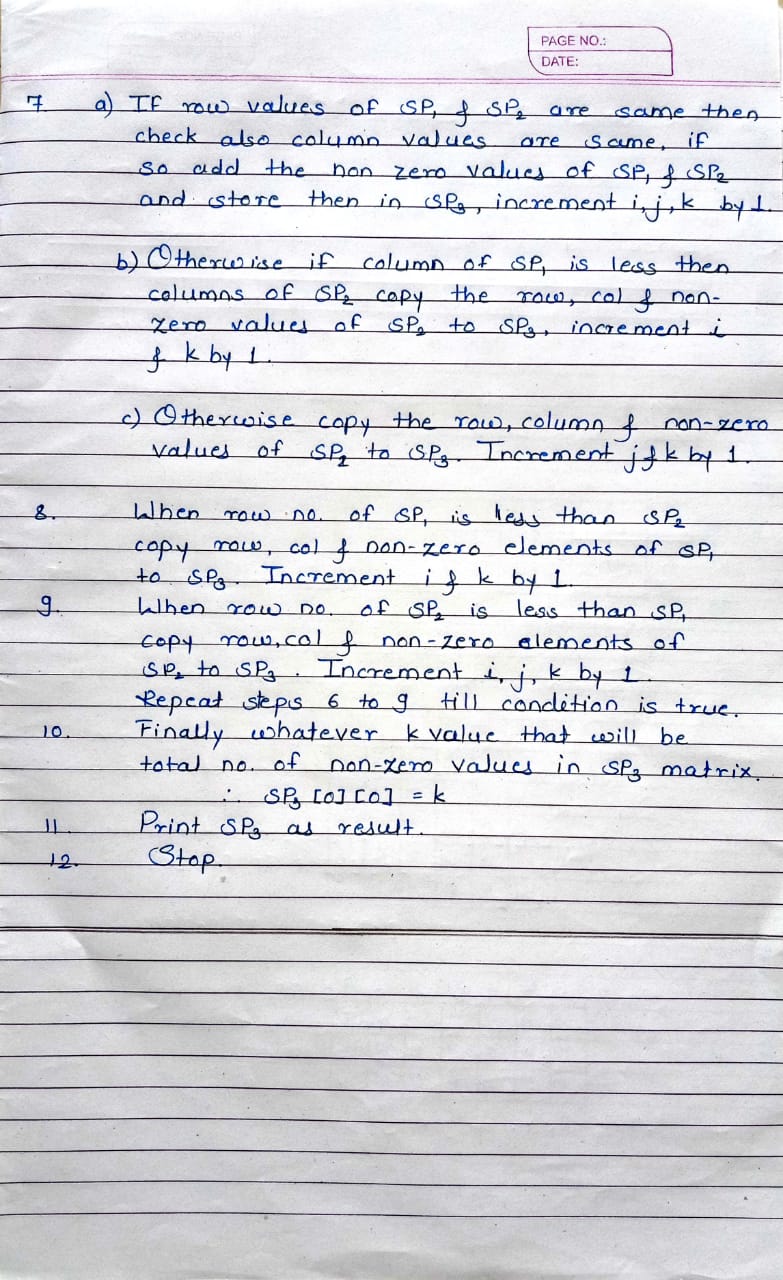 PAGE NO.:
DATE:
7 a) If row values of SP₁ & SP₂ are same then
check also column values are same, if
so add the non zero values of SP₁ & SP₂
and store then in SP₃, increment i,j,k by 1.
b) Otherwise if column of SP₁ is less then
columns of SP₂ copy the row, col & non-
zero values of SP₂ to SP₃, increment i
& k by 1.
c) Otherwise copy the row, column & non-zero
values of SP₂ to SP₃. Increment j & k by 1.
8. When row no. of SP₁ is less than SP₂
copy row, col & non-zero elements of SP₁
to SP₃. Increment i & k by 1.
9. When row no. of SP₂ is less than SP₁
copy row, col & non-zero elements of
SP₂ to SP₃. Increment i, j, k by 1.
Repeat steps 6 to 9 till condition is true.
10. Finally whatever k value that will be
total no. of non-zero values in SP₃ matrix.
∴ SP₃ [0] [0] = k
11. Print SP₃ as result.
12. Stop.